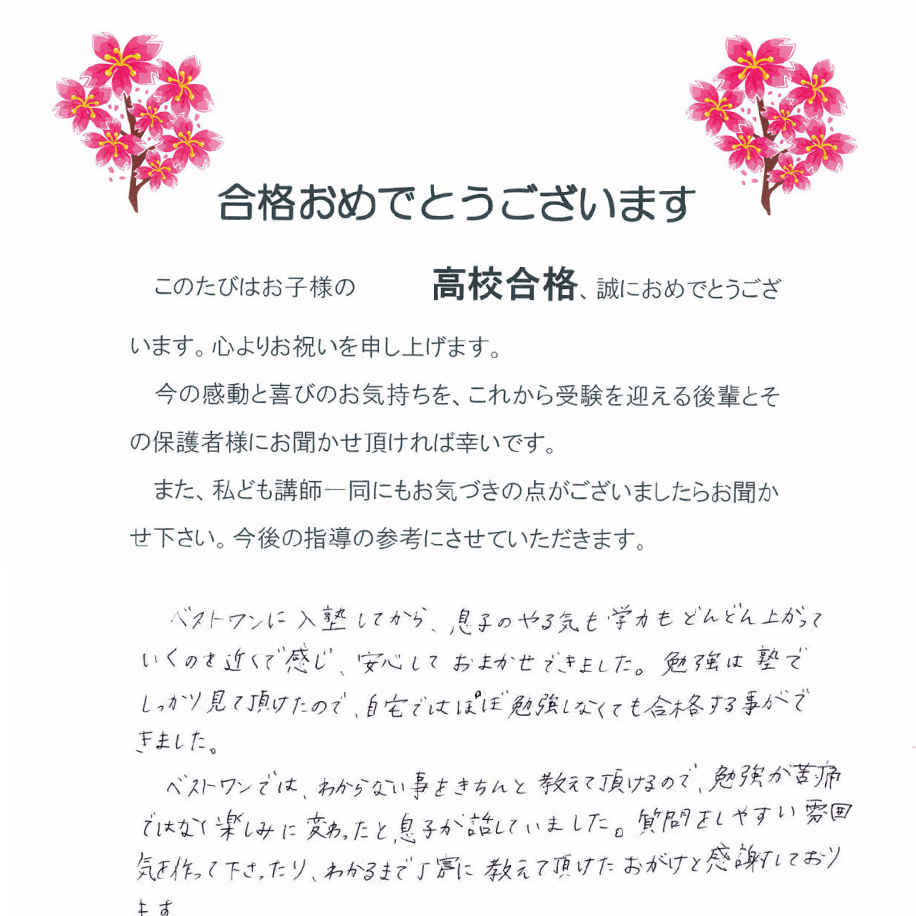 合格おめでとうございます
このたびはお子様の 高校合格、誠におめでとうござ
います。心よりお祝いを申し上げます。
今の感動と喜びのお気持ちを、これから受験を迎える後輩とそ
の保護者様にお聞かせ頂ければ幸いです。
また、私ども講師一同にもお気づきの点がございましたらお聞か
せ下さい。今後の指導の参考にさせていただきます。
ベストワンに入塾してから、息子のやる気も学力もどんどん上がって
いくのを近くで感じ、安心しておまかせできました。勉強は塾で
しっかり見て頂けたので、自宅ではほぼ勉強しなくても合格する事がで
きました。
ベストワンでは、わからない事をきちんと教えて頂けるので、勉強が苦痛
ではなく楽しみに変わったと息子が話していました。質問をしやすい雰囲
気を作って下さったり、わかるまで丁寧に教えて頂けたおかげと感謝しており
ます